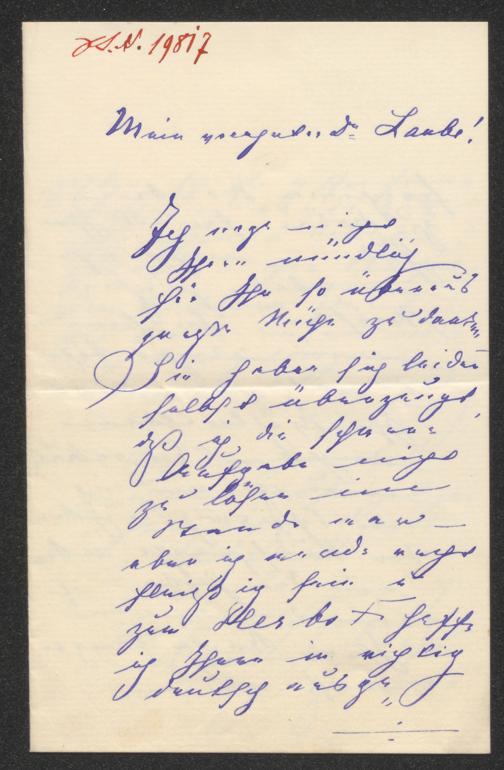 J. N. 19817
Mein verehrter Dr Laube!
Ich wage nicht
Ihnen mündlich
für Ihre so überaus
große Mühe zu danken
Sie haben sich leider
selbst überzeugt,
daß ich die schwere
Aufgabe nicht
zu lösen im
Stande war —
aber ich werde recht
fleißig sein u
zum Herbst hoffe
ich Ihnen in richtig
deutsch ausge„